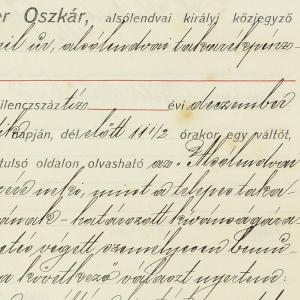 er Oszkár, alsólendvai királyi közjegyző
úr, alsólendvai takarékpénz-
ilencszáz tíz évi deczember
ik napján, dél előtt 11 1/2 órakor egy váltót,
tulsó oldalon olvasható az „Alsólendvai
mint a telepes taka-
határozott kivánságára
végett, személyesen bemu-
a következő választ nyertem: